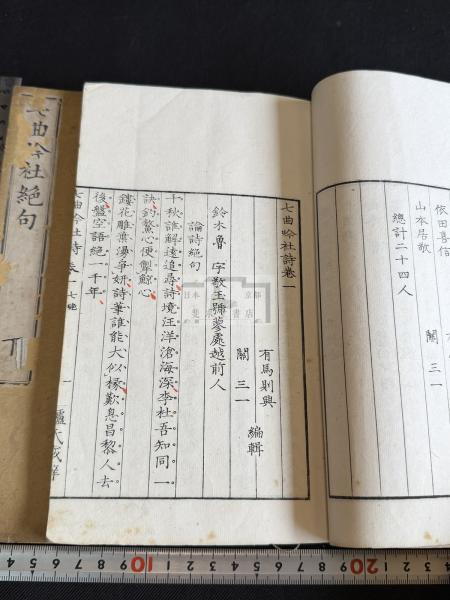 依田喜信
山本居敬 關三一
總計二十四人
七曲吟社詩卷一
有馬則興
關三一 編輯
鈴木魯 字敬玉號蓼處越前人
論詩絕句
十秋誰解遠追尋詩境汪洋滄海深李杜吾知同一
訣釣鰲心便掣鯨心
鏤花雕葉漫爭妍詩筆誰能大似椽歎息昌黎人去
後盤空語絕一千年
七曲吟社詩 卷一 七絕 一
七曲吟社絕句
下
日本 京都
書店
10
20